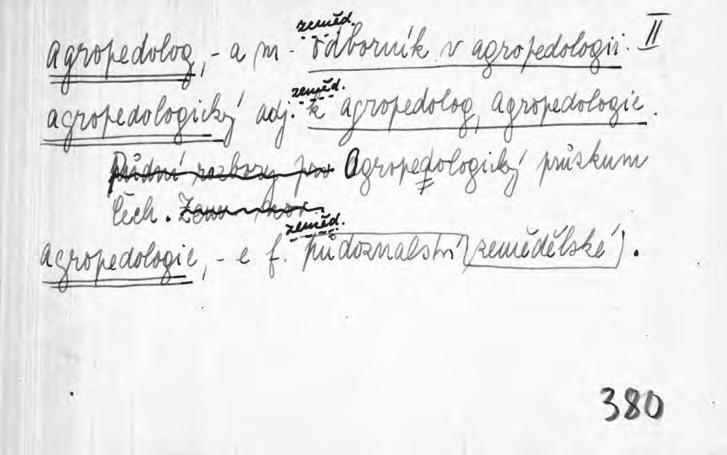 agropedolog, -a m. zeměd. odborník v agropedologii. II
agropedologický adj. zeměd. k agropedolog, agropedologie.
Půdní rozbory pro Agropedologický průzkum
Čech.
agropedologie, -e f. zeměd. půdoznalství (zemědělské).
380